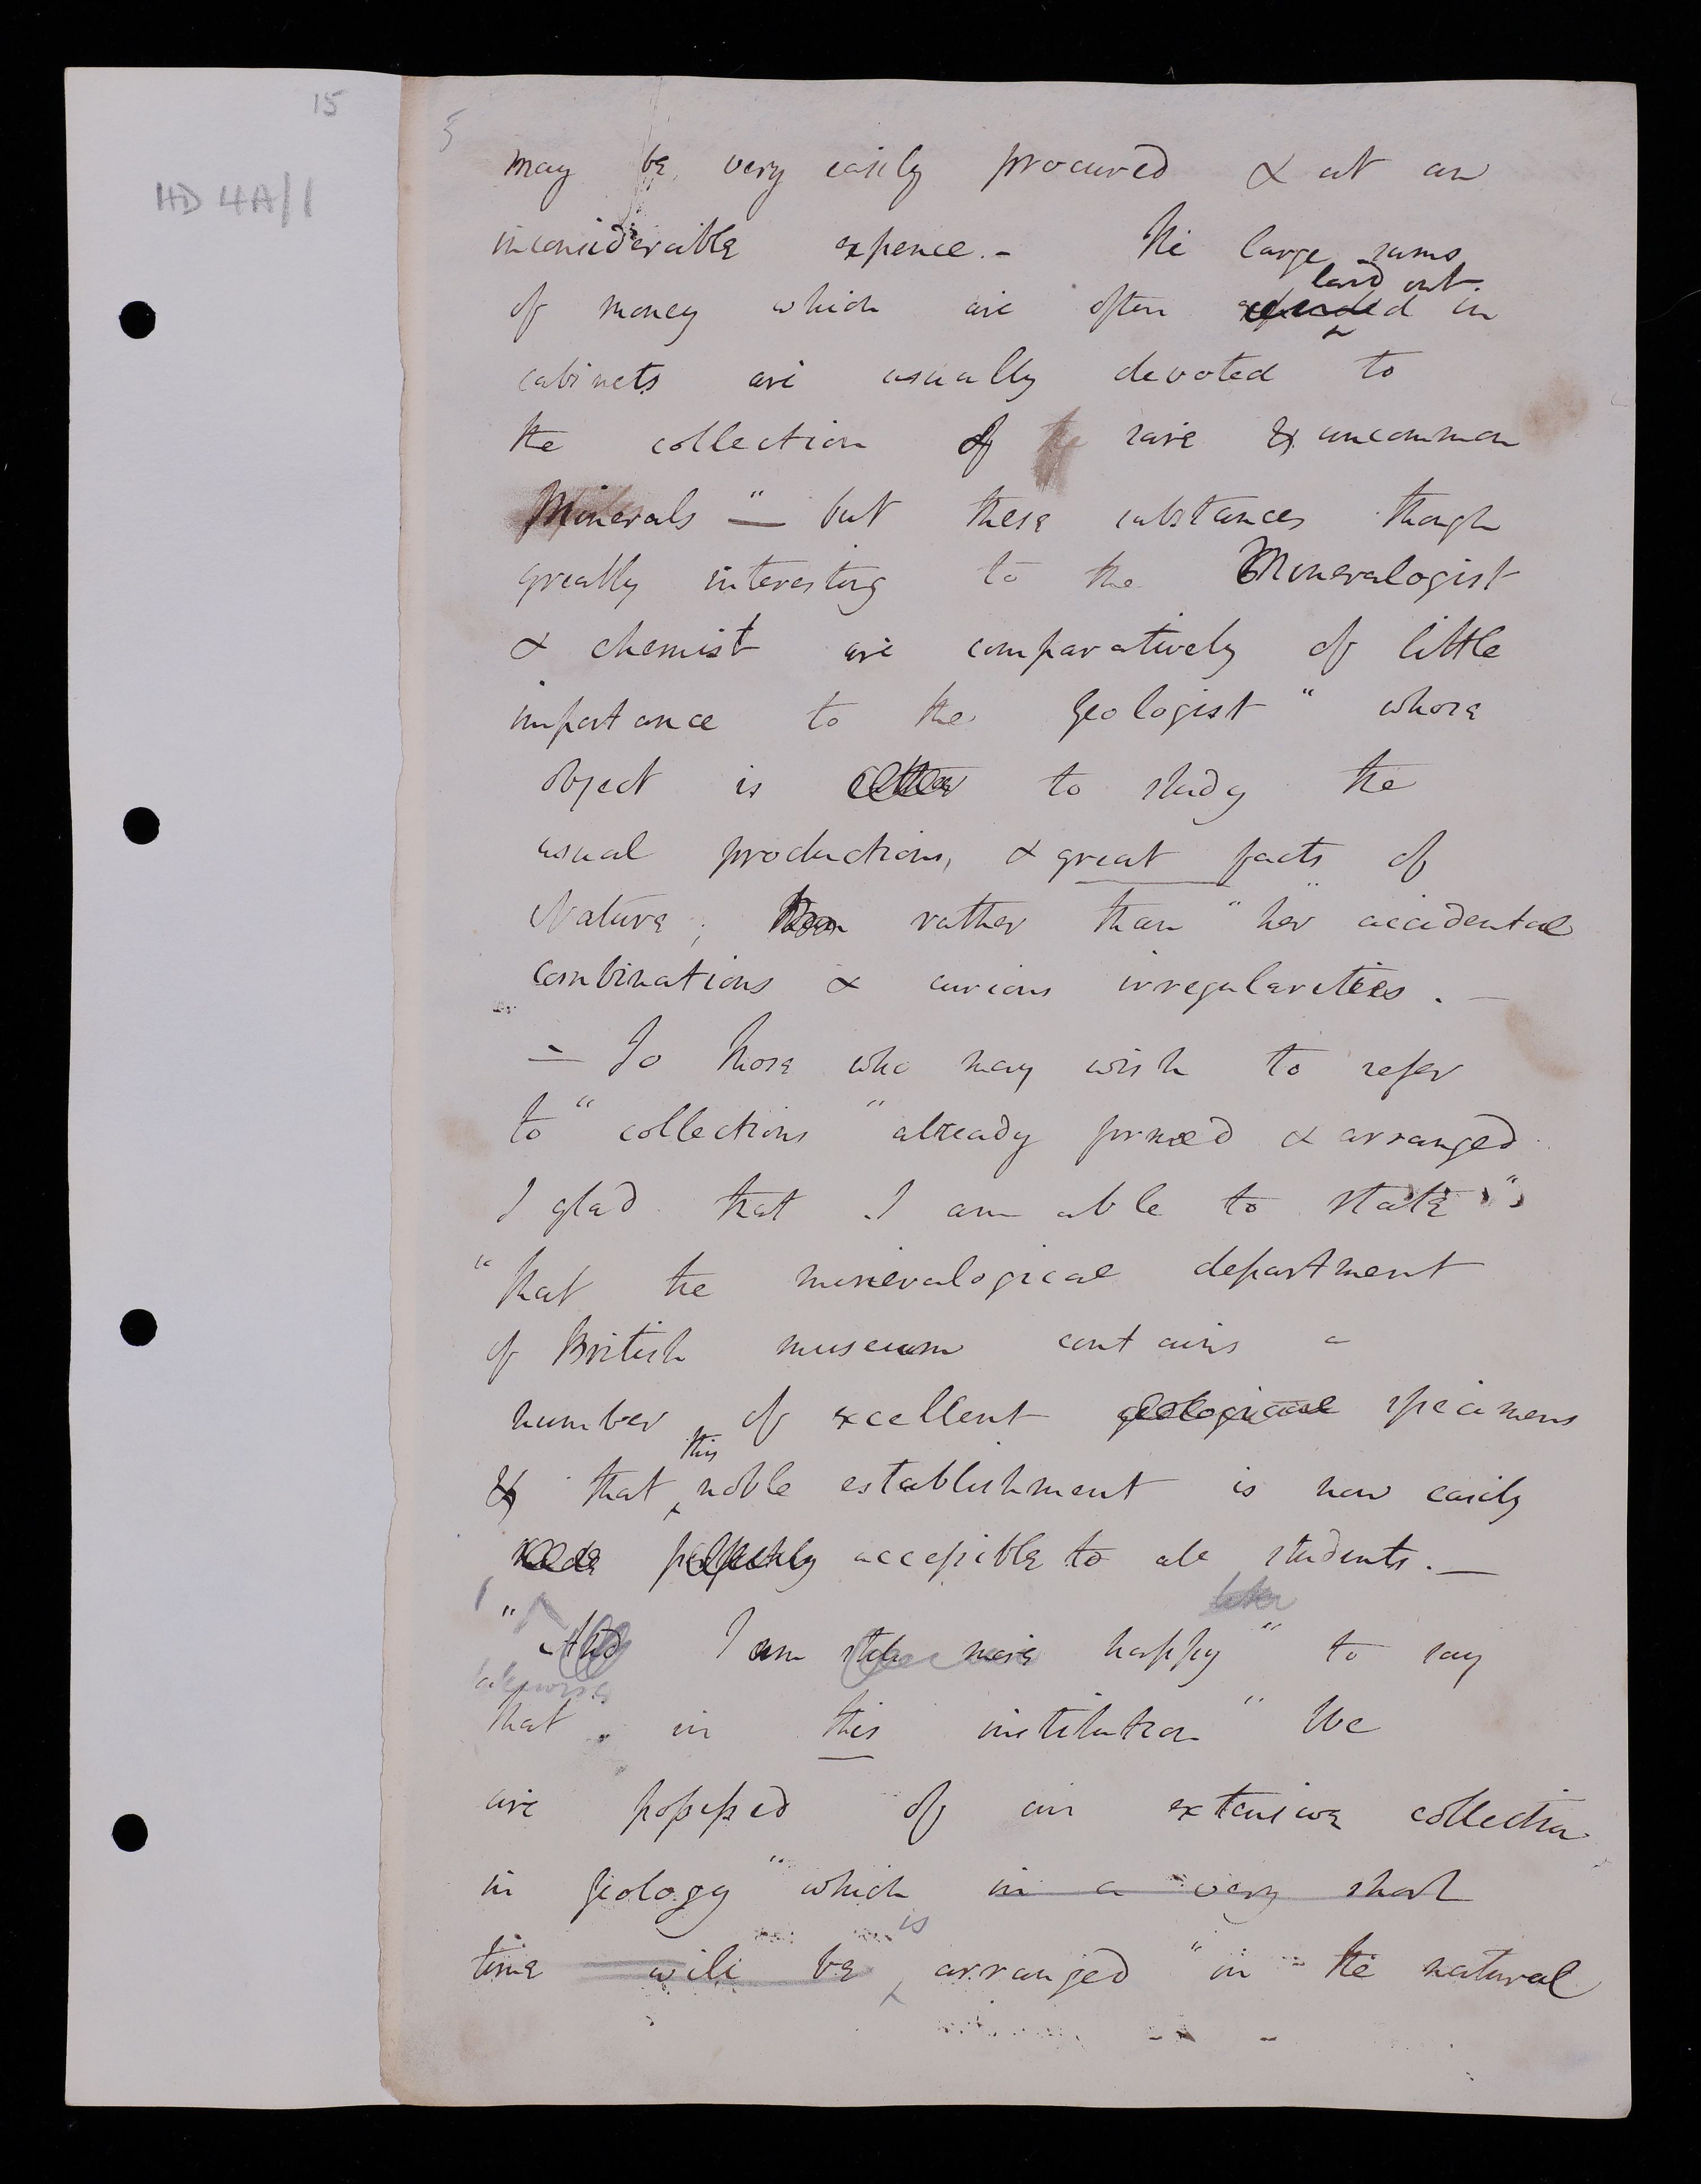 15
HD 4A/1
5
may be very easily procured & at an
inconsiderable expence. - The large sums
laid out
of money which are often expended in
cabinets are usually devoted to
the collection of the rare & uncommon
Minerals " — but these substances though
greatly interesting to the Mineralogist
& chemist are comparatively of little
importance to the Geologist " whose
object is to study the
usual productions, & great facts of
Nature ; rather than " her accidental
combinations & curious irregularities. —
— To those who may wish to refer
to " collections " already formed & arranged
I glad that I am able to state "
" that the mineralogical department
of British museum contains a
number of excellent geological specimens
this
& that noble establishment is now easily
perfectly accessible to all students. —
" And I am still more happy " to say
likewise
that in this institution " We
are possessed of an extensive collection
in geology " which in a very short
is
time will be arranged " in the natural